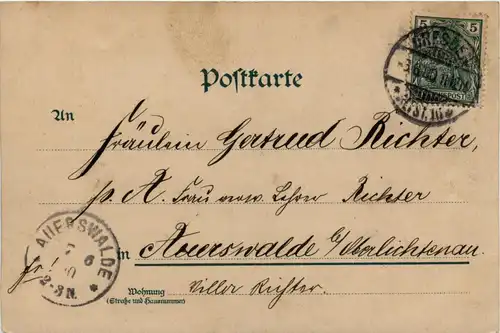 5 5
DRESDEN
Postkarte
An
Fräulein Gertrud Richter,
p. A. Frau verw. Lehrer Richter
in Auerswalde b/Oberlichtenau.
AUERSWALDE
6
2-3N.
Wohnung
(Straße und Hausnummer)
Villa Richter.